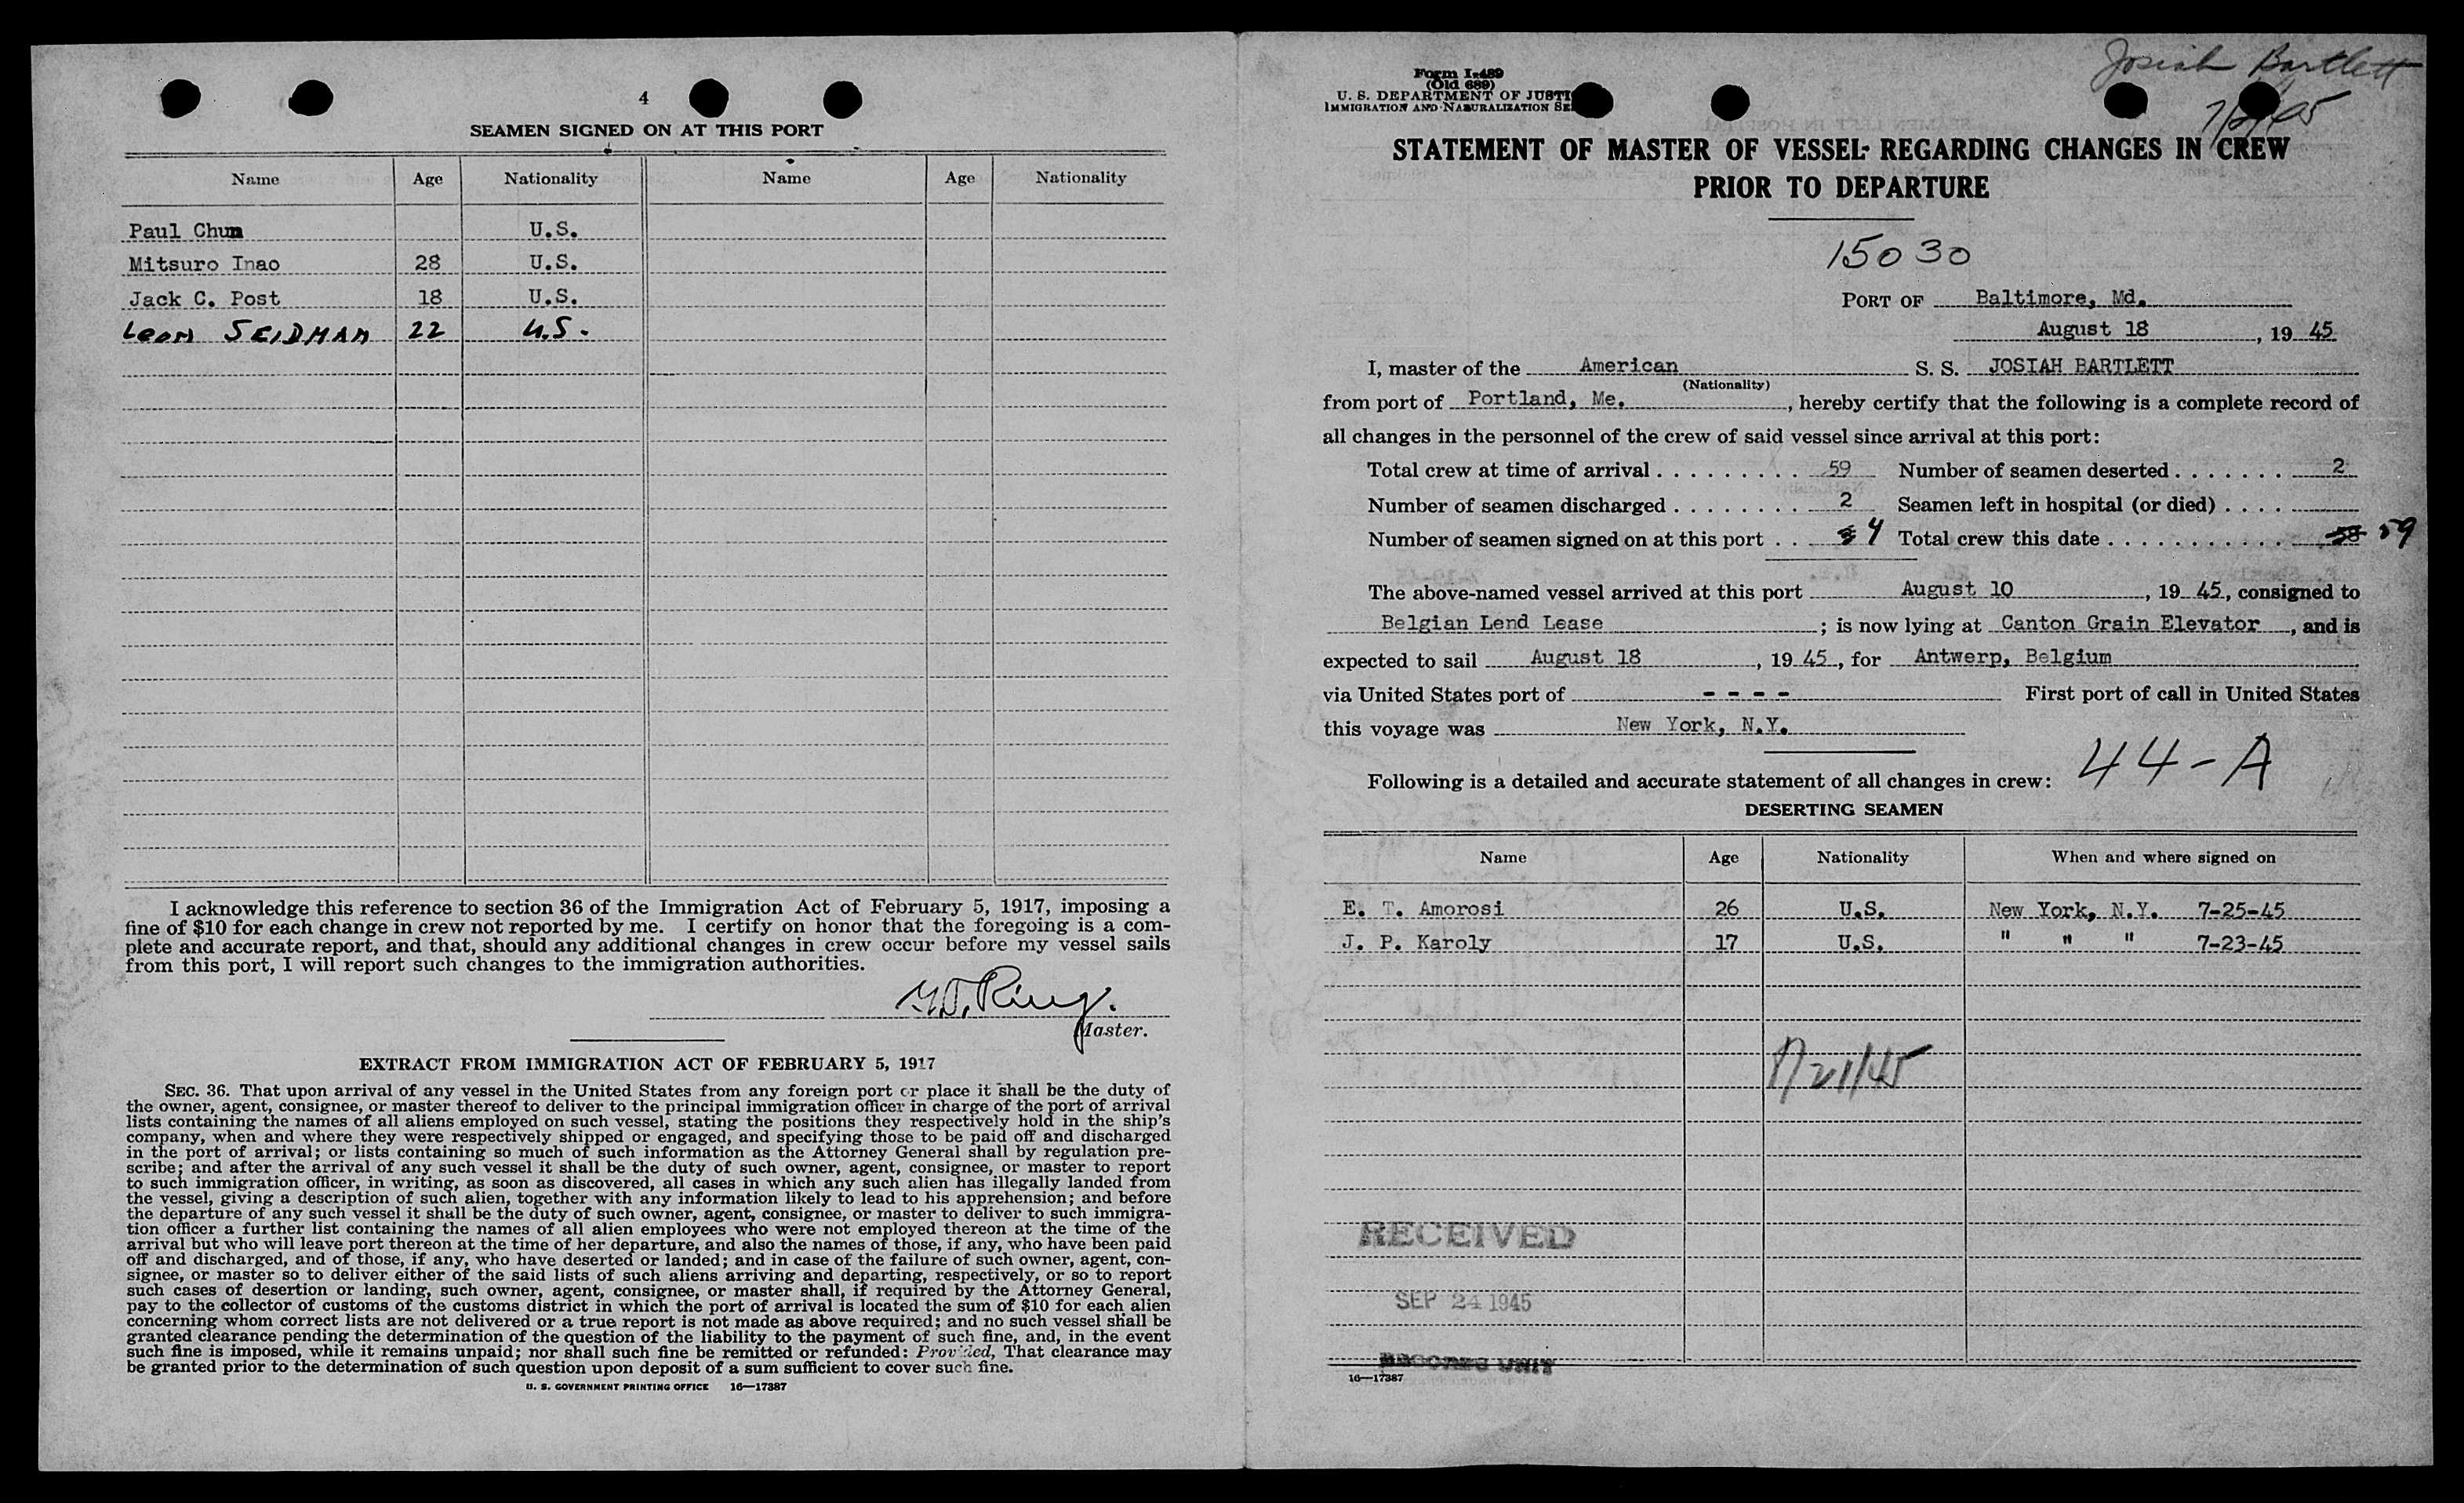 4
SEAMEN SIGNED ON AT THIS PORT
Name Age Nationality Name Age Nationality
Paul Chun U.S.
Mitsuro Inao 28 U.S.
Jack C. Post 18 U.S.
Leon SEIDMAN 22 U.S.
I acknowledge this reference to section 36 of the Immigration Act of February 5, 1917, imposing a
fine of $10 for each change in crew not reported by me. I certify on honor that the foregoing is a com-
plete and accurate report, and that, should any additional changes in crew occur before my vessel sails
from this port, I will report such changes to the immigration authorities.
Ring.
Master.
EXTRACT FROM IMMIGRATION ACT OF FEBRUARY 5, 1917
SEC. 36. That upon arrival of any vessel in the United States from any foreign port or place it shall be the duty of
the owner, agent, consignee, or master thereof to deliver to the principal immigration officer in charge of the port of arrival
lists containing the names of all aliens employed on such vessel, stating the positions they respectively hold in the ship's
company, when and where they were respectively shipped or engaged, and specifying those to be paid off and discharged
in the port of arrival; or lists containing so much of such information as the Attorney General shall by regulation pre-
scribe; and after the arrival of any such vessel it shall be the duty of such owner, agent, consignee, or master to report
to such immigration officer, in writing, as soon as discovered, all cases in which any such alien has illegally landed from
the vessel, giving a description of such alien, together with any information likely to lead to his apprehension; and before
the departure of any such vessel it shall be the duty of such owner, agent, consignee, or master to deliver to such immigra-
tion officer a further list containing the names of all alien employees who were not employed thereon at the time of the
arrival but who will leave port thereon at the time of her departure, and also the names of those, if any, who have been paid
off and discharged, and of those, if any, who have deserted or landed; and in case of the failure of such owner, agent, con-
signee, or master so to deliver either of the said lists of such aliens arriving and departing, respectively, or so to report
such cases of desertion or landing, such owner, agent, consignee, or master shall, if required by the Attorney General,
pay to the collector of customs of the customs district in which the port of arrival is located the sum of $10 for each alien
concerning whom correct lists are not delivered or a true report is not made as above required; and no such vessel shall be
granted clearance pending the determination of the question of the liability to the payment of such fine, and, in the event
such fine is imposed, while it remains unpaid; nor shall such fine be remitted or refunded: Provided, That clearance may
be granted prior to the determination of such question upon deposit of a sum sufficient to cover such fine.
U. S. GOVERNMENT PRINTING OFFICE 16—17387
Josiah Bartlett
Form I-489
(Old 689)
U. S. DEPARTMENT OF JUSTI
IMMIGRATION AND NATURALIZATION SE
STATEMENT OF MASTER OF VESSEL REGARDING CHANGES IN CREW
PRIOR TO DEPARTURE
15030
PORT OF Baltimore, Md.
August 18, 19 45
I, master of the American S. S. JOSIAH BARTLETT
(Nationality)
from port of Portland, Me., hereby certify that the following is a complete record of
all changes in the personnel of the crew of said vessel since arrival at this port:
Total crew at time of arrival . . . . . . . . . 59 Number of seamen deserted . . . . . . . 2
Number of seamen discharged . . . . . . . . 2 Seamen left in hospital (or died) . . . .
Number of seamen signed on at this port . . 3 4 Total crew this date . . . . . . . . . . . . 58 59
The above-named vessel arrived at this port August 10, 19 45, consigned to
Belgian Lend Lease; is now lying at Canton Grain Elevator, and is
expected to sail August 18, 19 45, for Antwerp, Belgium
via United States port of - - - - First port of call in United States
this voyage was New York, N.Y.
44-A
Following is a detailed and accurate statement of all changes in crew:
DESERTING SEAMEN
Name Age Nationality When and where signed on
E. T. Amorosi 26 U.S. New York, N.Y. 7-25-45
J. P. Karoly 17 U.S. " " " 7-23-45
RECEIVED
SEP 24 1945
RECORDS UNIT
16—17387